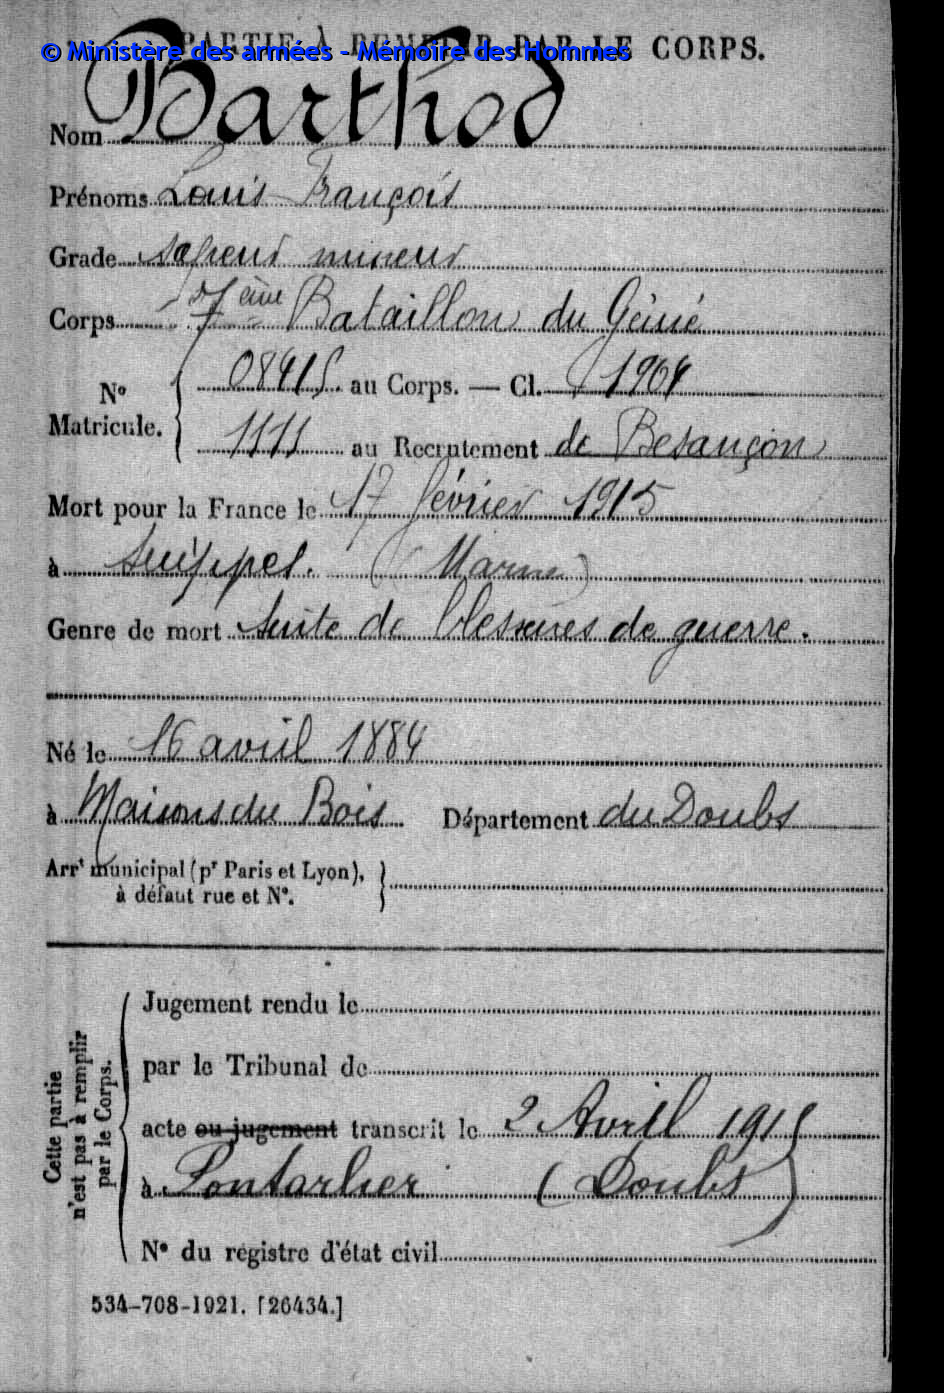 PARTIE À REMPLIR PAR LE CORPS.
© Ministère des armées - Mémoire des Hommes
Nom Barthod
Prénoms Louis François
Grade sapeur mineur
Corps 7ème Bataillon du Génie
No Matricule. { 08415 au Corps. — Cl. 1904
1111 au Recrutement de Besançon
Mort pour la France le 17 février 1915
à Suippes. (Marne)
Genre de mort Suite de blessures de guerre.
Né le 16 avril 1884
à Maisons du Bois Département du Doubs
Arrt municipal (pr Paris et Lyon), }
à défaut rue et N°.
Cette partie
n'est pas à remplir
par le Corps.
Jugement rendu le
par le Tribunal de
acte ou jugement transcrit le 2 Avril 1915
à Pontarlier (Doubs)
N° du registre d'état civil
534-708-1921. [26434.]